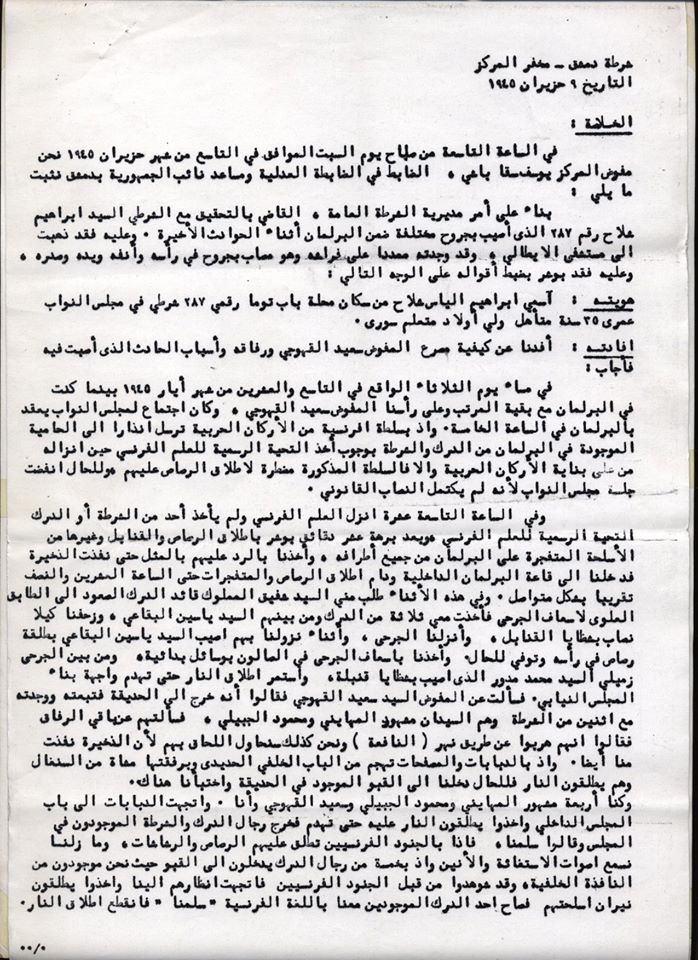 شرطة دمشق - مخفر المركز
التاريخ ٩ حزيران ١٩٤٥
الخلاصة :
في الساعة التاسعة من صباح يوم السبت الموافق في التاسع من شهر حزيران ١٩٤٥ نحن
مفوض المركز يوسف سقا باشي ، الضابط في الضابطة العدلية ومساعد نائب الجمهورية بدمشق نثبت
ما يلي :
بناء على أمر مديرية الشرطة العامة ، القاضي بالتحقيق مع الشرطي السيد ابراهيم
شلاح رقم ٢٨٧ الذي أصيب بجروح مختلفة ضمن البرلمان أثناء الحوادث الأخيرة . وعليه فقد ذهبت
الى مستشفى الايطالي ، وقد وجدته ممددا على فراشه وهو مصاب بجروح في رأسه وأنفه ويده وصدره ،
وعليه فقد بوشر بضبط أقواله على الوجه التالي :
هويته : آسمي ابراهيم الياس شلاح من سكان محلة باب توما رقمي ٢٨٧ شرطي في مجلس النواب
عمري ٣٥ سنة متأهل ولي أولاد متعلم سوري .
افادته : أفدنا عن كيفية مصرع المفوض سعيد القهوجي ورفاقه وأسباب الحادث الذي أصبت فيه
فأجاب :
في مساء يوم الثلاثاء الواقع في التاسع والعشرين من شهر أيار ١٩٤٥ بينما كنت
في البرلمان مع بقية المرتب وعلى رأسنا المفوض سعيد القهوجي ، وكان اجتماع لمجلس النواب يعقد
بالبرلمان في الساعة الخامسة . واذ بسلطة افرنسية من الأركان الحربية ترسل انذارا الى الحامية
الموجودة في البرلمان من الدرك والشرطة بوجوب أخذ التحية الرسمية للعلم الفرنسي حين انزاله
من على بناية الأركان الحربية والا فالسلطة المذكورة مضطرة لاطلاق الرصاص عليهم وللحال انفضت
جلسة مجلس النواب لأنه لم يكتمل النصاب القانوني .
وفي الساعة التاسعة عشرة انزل العلم الفرنسي ولم يأخذ أحد من الشرطة أو الدرك
التحية الرسمية للعلم الفرنسي وبعد برهة عشر دقائق بوشر باطلاق الرصاص والقنابل وغيرها من
الأسلحة المتفجرة على البرلمان من جميع أطرافه ، وأخذنا بالرد عليهم بالمثل حتى نفذت الذخيرة
فدخلنا الى قاعة البرلمان الداخلية ودام اطلاق الرصاص والمتفجرات حتى الساعة العشرين والنصف
تقريبا بشكل متواصل . وفي هذه الأثناء طلب مني السيد شفيق المملوك قائد الدرك الصعود الى الطابق
العلوي لاسعاف الجرحى فأخذت معي ثلاثة من الدرك ومن بينهم السيد ياسين البقاعي ، وزحفنا كيلا
نصاب بشظايا القنابل ، وأنزلنا الجرحى ، وأثناء نزولنا بهم اصيب السيد ياسين البقاعي بطلقة
رصاص في رأسه وتوفي للحال . وأخذنا باسعاف الجرحى في الصالون بوسائل بدائية ، ومن بين الجرحى
زميلي السيد محمد مدور الذي اصيب بشظايا قنبلة ، واستمر اطلاق النار حتى تهدم واجهة بناء
المجلس النيابي . فسألت عن المفوض السيد سعيد القهوجي فقالوا أنه خرج الى الحديقة فتبعته ووجدته
مع اثنين من الشرطة وهم السيدان مشهور المهايني ومحمود الجبيلي ، فسألتهم عن باقي الرفاق
فقالوا انهم هربوا عن طريق نهر ( النافعة ) ونحن كذلك سنحاول اللحاق بهم لأن الذخيرة نفذت
منا أيضا . واذ بالدبابات والمصفحات تهجم من الباب الخلفي الحديدي وبرفقتها مشاة من السنغال
وهم يطلقون النار فللحال دخلنا الى القبو الموجود في الحديقة واختبأنا هناك .
وكنا أربعة مشهور المهايني ومحمود الجبيلي وسعيد القهوجي وأنا . واتجهت الدبابات الى باب
المجلس الداخلي واخذوا يطلقون النار عليه حتى تهدم فخرج رجال الدرك والشرطة الموجودون في
المجلس وقالوا سلمنا ، فاذا بالجنود الفرنسيين تطلق عليهم الرصاص والرشاشات ، وما زلنا
نسمع اصوات الاستغاثة والأنين واذ بخمسة من رجال الدرك يدخلون الى القبو حيث نحن موجودون من
النافذة الخلفية ، وقد شوهدوا من قبل الجنود الفرنسيين فاتجهت انظارهم الينا واخذوا يطلقون
نيران اسلحتهم فصاح احد الدرك الموجودين معنا باللغة الفرنسية "سلمنا" فانقطع اطلاق النار .
٠٠/٠